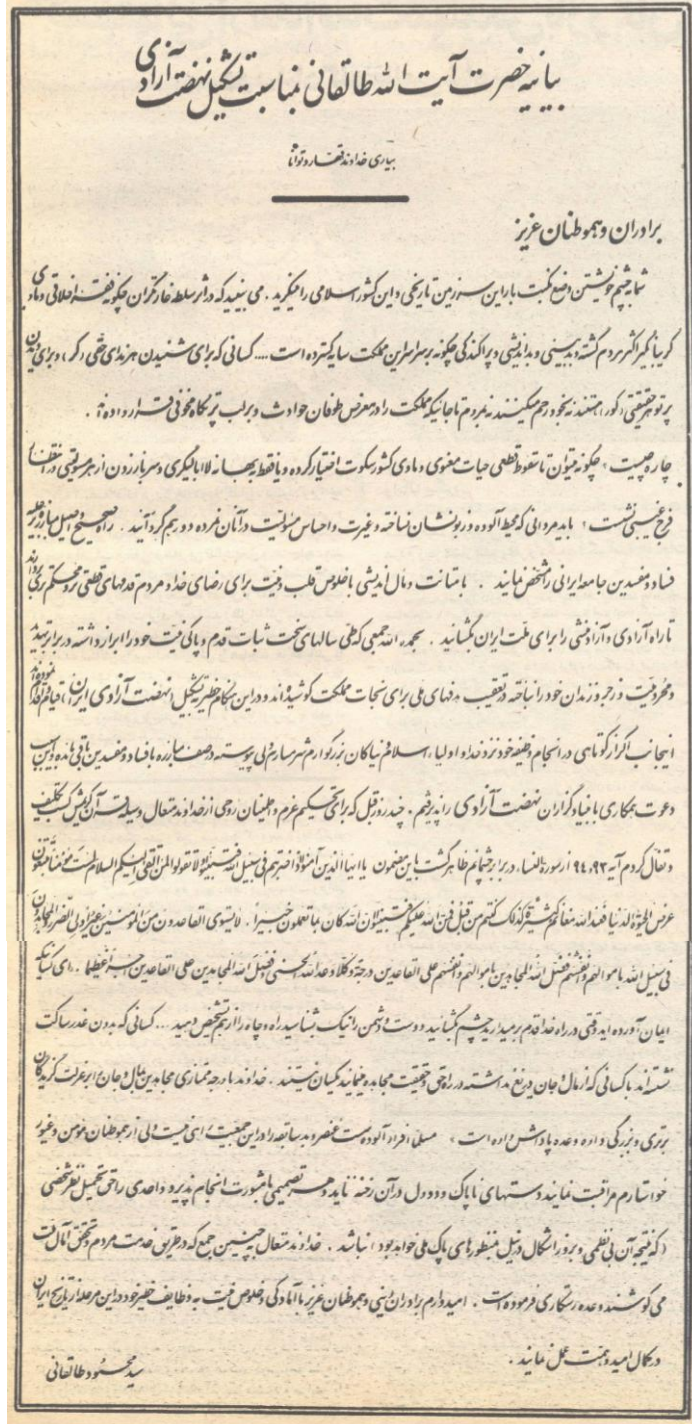 بیانیه حضرت آیت الله طالقانی بمناسبت تشکیل نهضت آزادی
بیاری خداوند قهار و توانا
برادران و هموطنان عزیز
شما بچشم خویشتن وضع نکبت بار این سرزمین تاریخی و این کشور اسلامی را مینگرید . می بینید که در اثر سلطه غارتگران چگونه فقر اخلاقی و مادی
گریبانگیر اکثر مردم گشته و بدبینی و بداندیشی و پراکندگی چگونه بر سراسر این مملکت سایه گسترده است .... کسانی که برای شنیدن هر ندای حقی ( کر ) و برای دیدن
پرتو هر حقیقتی ( کور ) هستند نه بخود رحم میکنند نه بمردم تا جائیکه مملکت را در معرض طوفان حوادث و بر لب پرتگاه مخوفی قرار داده اند .
چاره چیست ؟ چگونه میتوان تا سقوط قطعی حیات معنوی و مادی کشور سکوت اختیار کرده و یا فقط ببهانه لاابالیگری و سر باز زدن از هر مسئولیتی در انتظار
فرج غیبی نشست ؟ باید مردانی که محیط آلوده و زبونشان نساخته و غیرت و احساس مسئولیت در آنان نمرده دور هم گرد آیند . راه صحیح و اصیل مبارزه علیه
فساد و مفسدین جامعه ایرانی را مشخص نمایند . با متانت و مآل اندیشی با خلوص قلب و نیت برای رضای خدا و مردم قدمهای قطعی تر و محکم تری بردارند
تا راه آزادی و آزادمنشی را برای ملت ایران بگشایند . بحمد الله جمعی که طی سالهای سخت ثبات قدم و پاکی نیت خود را ابراز داشته در برابر تهدید
و محرومیت و زجر و زندان خود را نباخته در تعقیب هدفهای ملی برای نجات مملکت کوشیده اند و در این هنگام خطیر به تشکیل ( نهضت آزادی ایران ) قیام و اقدام نموده اند
اینجانب اگر از کوتاهی در انجام وظیفه خود نزد خدا و اولیاء اسلام و نیاکان بزرگوارم شرمسارم ولی پیوسته در صف مبارزه با فساد و مفسدین باقی مانده و این
دعوت همکاری با بنیادگزاران نهضت آزادی را پذیرفتم . چند روز قبل که برای تحکیم عزم و اطمینان روحی از خداوند متعال و بوسیله قرآن کریمش کسب تکلیف
و تفأل کردم آیه ۹۳ ، ۹۴ از سوره النساء ، در برابر چشمانم ظاهر گشت باین مضمون یا ایها الذین آمنوا اذا ضربتم فی سبیل الله فتبینوا و لا تقولوا لمن القی الیکم السلام لست مؤمنا تبتغون
عرض الحیوة الدنیا فعند الله مغانم کثیرة کذلک کنتم من قبل فمن الله علیکم فتبینوا ان الله کان بما تعملون خبیرا . لا یستوی القاعدون من المؤمنین غیر اولی الضرر و المجاهدون
فی سبیل الله باموالهم و انفسهم فضل الله المجاهدین باموالهم و انفسهم علی القاعدین درجة و کلا وعد الله الحسنی و فضل الله المجاهدین علی القاعدین اجرا عظیما . ای کسانیکه
ایمان آورده اید وقتی در راه خدا قدم برمیدارید چشم بگشائید دوست و دشمن را نیک بشناسید راه و چاه را از هم تشخیص دهید ... کسانی که بدون عذر ساکت
نشسته اند با کسانی که از مال و جان دریغ نداشته در راه حق و حقیقت مجاهده مینمایند یکسان نیستند . خداوند با درجه ممتازی مجاهدین بمال و جان را بر عزلت گزیدگان
برتری و بزرگی داده و وعده پاداش داده است ، مسلما افراد آلوده سست عنصر و بدسابقه را در این جمعیت راهی نیست ولی از هموطنان مومن و غیور
خواستارم مراقبت نمایند دستهای ناپاک و دو دل در آن رخنه ننماید و هر تصمیمی با مشورت انجام پذیرد و احدی را حق تحمیل نظر شخصی
( که نتیجه آن بی نظمی و بروز اشکال در نیل منظورهای پاک ملی خواهد بود ) نباشد . خداوند متعال بچنین جمع که در طریق خدمت مردم و تحقق آمال ملت
می کوشند وعده رستگاری فرموده است . امیدوارم برادران دینی و هموطنان عزیز با آمادگی و خلوص نیت به وظایف خطیر خود در این مرحله از تاریخ ایران
در کمال امید و همت عمل نمایند .
سید محمود طالقانی